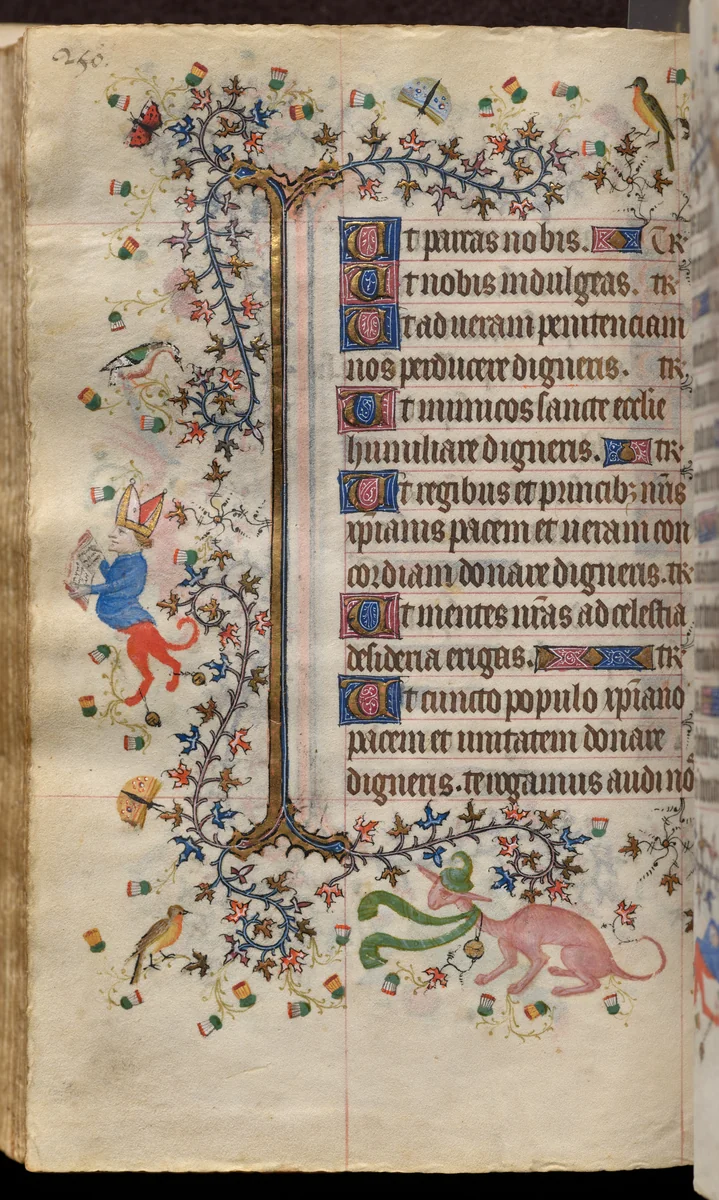 250.
Ut parcas nobis. TR
Ut nobis indulgeas. TR
Ut ad ueram penitenciam
nos perducere digneris. TR
Ut inimicos sancte ecclie
humiliare digneris. TR
Ut regibus et principibꝫ nr̄is
xp̄ianis pacem et ueram con
cordiam donare digneris. TR
Ut mentes nr̄as ad celestia
desideria erigas. TR
Ut cuncto populo xp̄iano
pacem et unitatem donare
digneris. te rogamus audi no